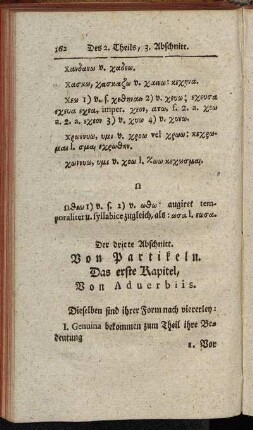 162 Des 2. Theils, 3. Abschnitt.
χανδανω v. χαδεω.
χασκω, χασκαζω v. χαινω: κεχηνα.
χεω 1) v. s. χεθησαι 2) v. χευω; εχευσα
εχευα εχεα, imper. χεον, ατω. s. 2. a. χεω
a. 2. a. εχεον 3) v. χυω 4) v. χυνω.
χρωννυω, υμι v. χροω vel χρωω: κεχρω-
μαι l. σμαι, εχρωθην.
χωννυω, υμι v. χοω l. ζωω κεχωσμαι.
Ω
Ωθεω 1) v. s. 2) v. ωθω: augiret tem-
poraliter u. syllabice zugleich, als: ωσα l. εωσα.
Der dritte Abschnitt.
Von Partikeln.
Das erste Kapitel,
Von Aduerbiis.
Dieselben sind ihrer Form nach viererley:
I. Genuina bekommen zum Theil ihre Be-
deutung
1. Vor